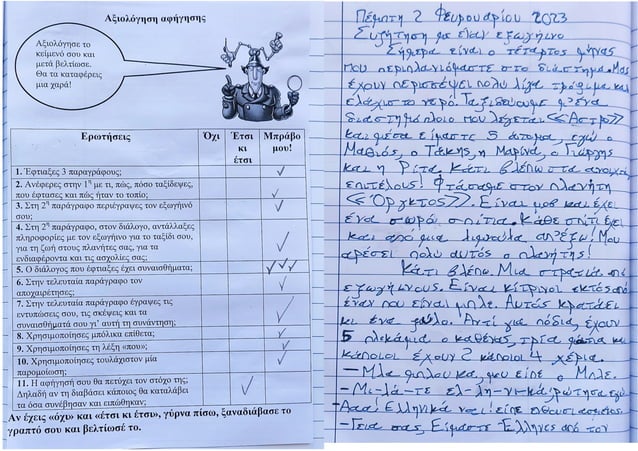 Αξιολόγηση αφήγησης
Αξιολόγησε το
κείμενό σου και
μετά βελτίωσε.
Θα τα καταφέρεις
μια χαρά!
Ερωτήσεις Όχι Έτσι κι έτσι Μπράβο μου!
1. Έφτιαξες 3 παραγράφους;
2. Ανέφερες στην 1η με τι, πώς, πόσο ταξίδεψες,
που έφτασες και πώς ήταν το τοπίο;
3. Στη 2η παράγραφο περιέγραψες τον εξωγήινό
σου;
4. Στη 2η παράγραφο, στον διάλογο, αντάλλαξες
πληροφορίες με τον εξωγήινο για το ταξίδι σου,
για τη ζωή στους πλανήτες σας, για τα
ενδιαφέροντα και τις ασχολίες σας;
5. Ο διάλογος που έφτιαξες έχει συναισθήματα;
6. Στην τελευταία παράγραφο τον
αποχαιρέτησες;
7. Στην τελευταία παράγραφο έγραψες τις
εντυπώσεις σου, τις σκέψεις και τα
συναισθήματά σου γι' αυτή τη συνάντηση;
8. Χρησιμοποίησες μπόλικα επίθετα;
9. Χρησιμοποίησες τη λέξη «που»;
10. Χρησιμοποίησες τουλάχιστον μία
παρομοίωση;
11. Η αφήγησή σου θα πετύχει τον στόχο της;
Δηλαδή αν τη διαβάσει κάποιος θα καταλάβει
τα όσα συνέβησαν και ειπώθηκαν;
Αν έχεις «όχι» και «έτσι κι έτσι», γύρνα πίσω, ξαναδιάβασε το
γραπτό σου και βελτίωσέ το.
Πέμπτη 2 Φεβρουαρίου 2023
Συζήτηση με έναν εξωγήινο
Σήμερα είναι ο τέταρτος μήνας
που περιπλανιόμαστε στο διάστημα. Μας
έχουν περισσέψει πολύ λίγα τρόφιμα και
ελάχιστο νερό. Ταξιδεύουμε μ' ένα
διαστημόπλοιο που λέγεται «Άστρο»
και μέσα είμαστε 5 άτομα, εγώ ο
Μαθιός, ο Τάκης, η Μαρίνα, ο Γιώργης
και η Ρίτα. Κάτι βλέπω στα ανοιχτά,
επιτέλους! Φτάσαμε στον πλανήτη
«Όργκτος». Είναι μοβ και έχει
ένα σωρό σπίτια. Κάθε σπίτι έχει
και από μια λιμνούλα απ' έξω! Μου
αρέσει πολύ αυτός ο πλανήτης!
Κάτι βλέπω. Μια στρατιά από
εξωγήινους. Είναι κίτρινοι εκτός από
έναν που είναι μπλε. Αυτός κρατάει
κι ένα Αντί για πόδια, έχουν
5 πλοκάμια ο καθένας, τρία μάτια και
κάποιοι έχουν 2 κάποιοι 4 χέρια.
– Μλα μπλουκα, μου είπε ο Μπλε.
– Μι-λά-τε ελ-λη-νι-κά; ρώτησα εγώ
– Ααα! Ελληνικά ναι! είπε
– Γεια σας. Είμαστε Έλληνες από τον